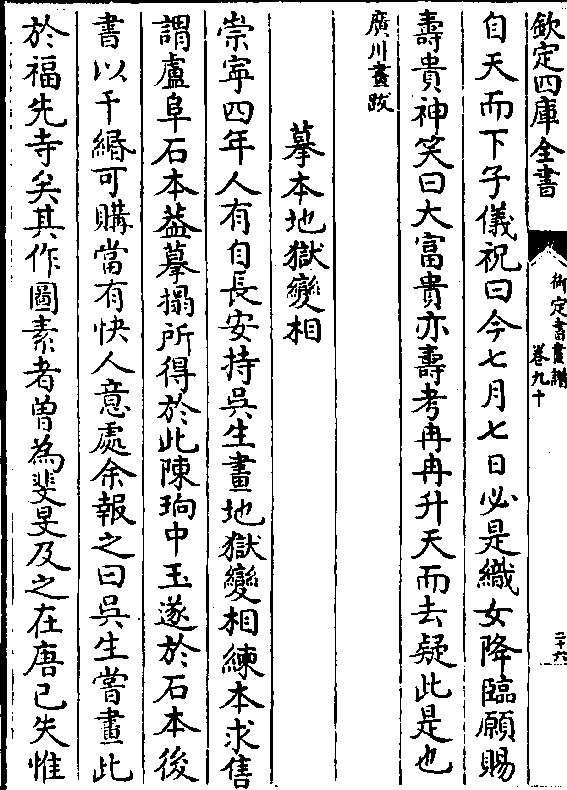 欽定四庫全書
御定書畫譜
卷九十
二十六
自天而下子儀祝曰今七月七日必是織女降臨願賜
壽貴神笑曰大富貴亦壽考冉冉升天而去疑此是也
廣川畫跋
摹本地獄變相
崇寧四年人有自長安持吳生畫地獄變相練本求售
謂盧阜石本葢摹搨所得於此陳珦中玉遂於石本後
書以千緡可購當有快人意處余報之曰吳生嘗畫此
於福先寺矣其作圖素者曾為斐旻及之在唐已失惟